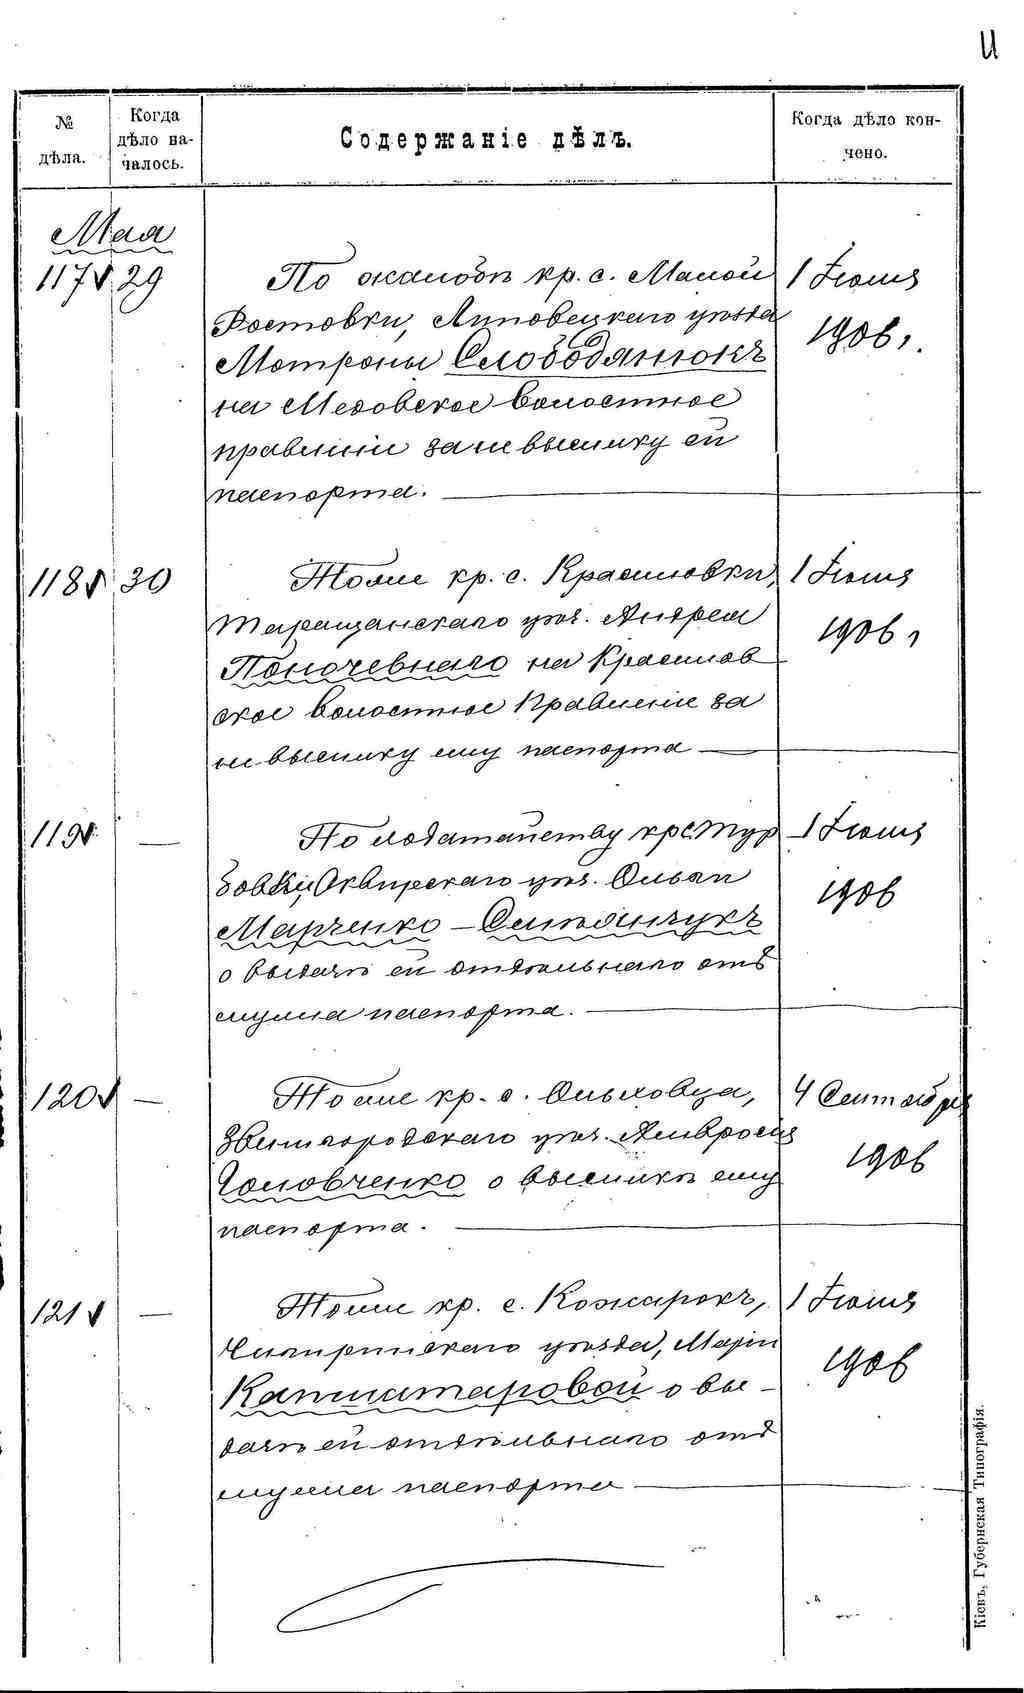 И
№ дѣла.
Когда дѣло началось.
Содержаніе дѣлъ.
Когда дѣло кончено.
Мая
117 29 По жалобѣ кр. с. Малой 1 Іюня
Ростовки, Липовецкаго уѣзда 1906 г.
Мотроны Слободянюкъ
на Медовское волостное
правленіе за не высылку ей
паспорта.
118 30 Тоже кр. с. Красиловки, 1 Іюня
Таращанскаго уѣз. Андрея 1906 г
Поночевнаго на Красилов
ское волостное Правленіе за
не высылку ему паспорта
119 — По ходатайству кр. с. Тур 1 Іюня
бовки, Сквирскаго уѣз. Ольги 1906
Марченко - Степанчукъ
о выдачѣ ей отдѣльнаго отъ
мужа паспорта.
120 — Тоже кр. с. Ольховца, 4 Сентября
Звенигородскаго уѣз. Амвросія 1906
Головченко о высылкѣ ему
паспорта.
121 — Тоже кр. с. Кожарокъ, 1 Іюня
Чигиринскаго уѣзда, Маріи 1906
Капшатаровой о вы-
дачѣ ей отдѣльнаго отъ
мужа паспорта
Кіевъ, Губернская Типографія.